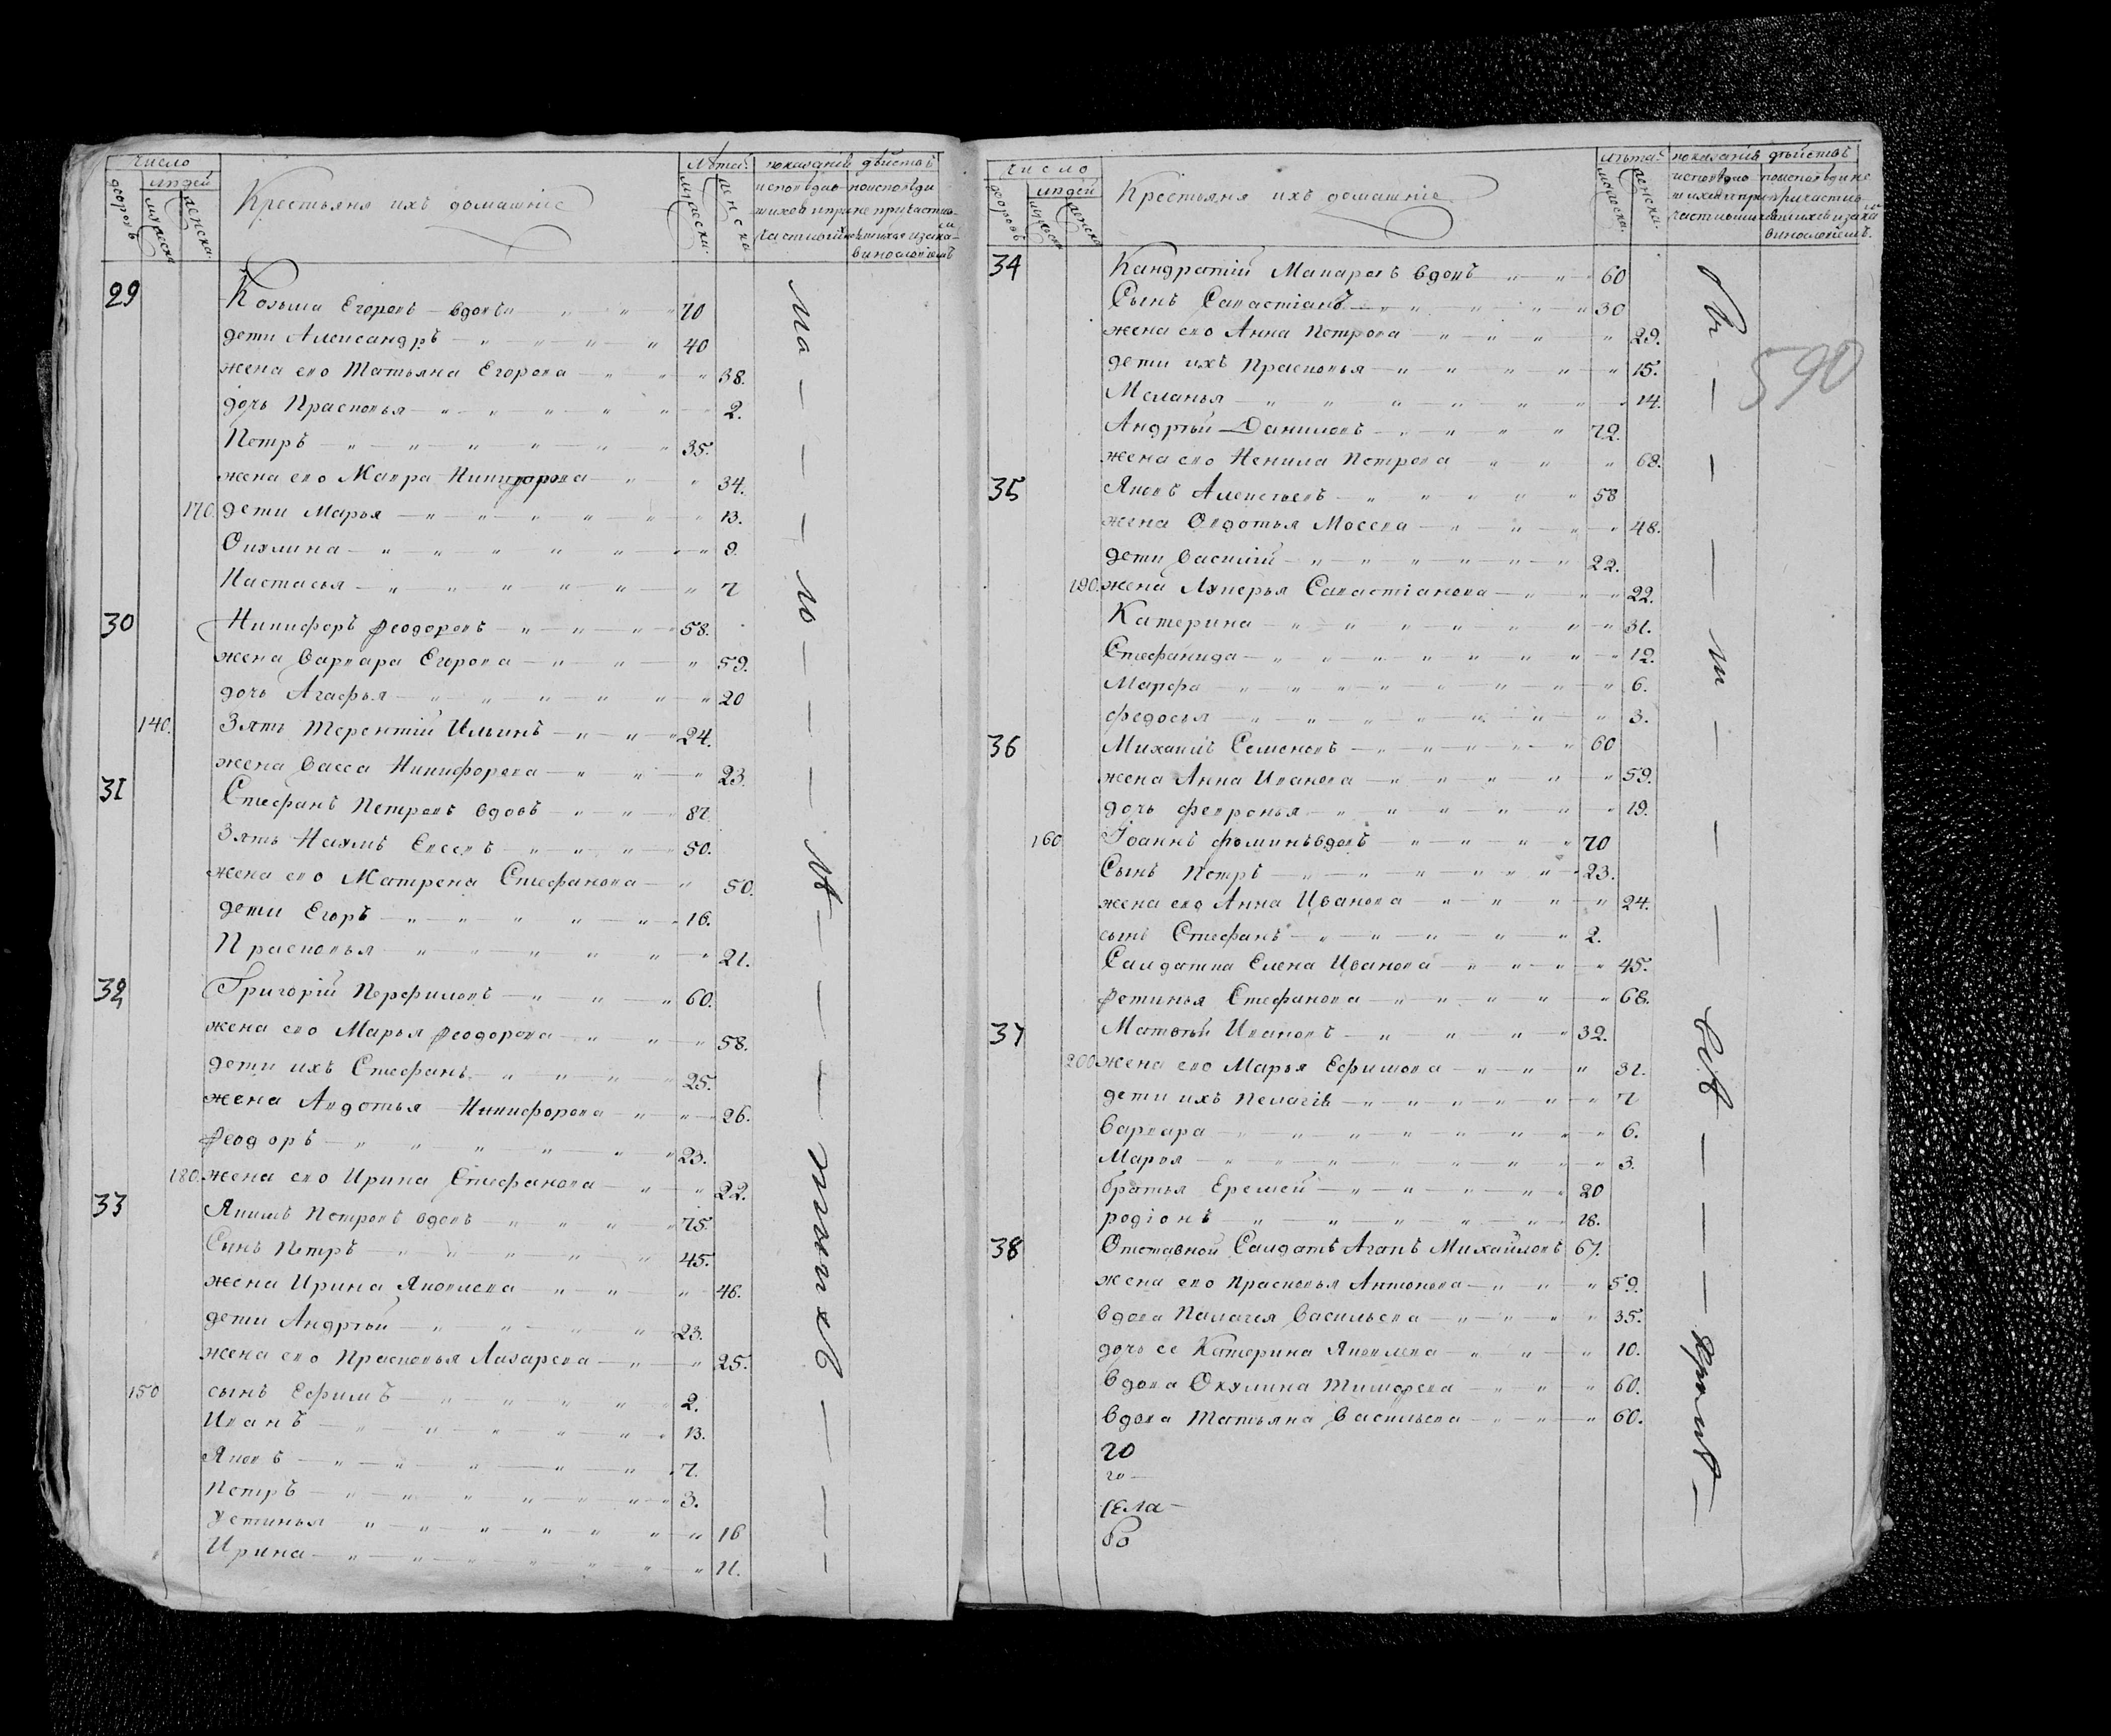 Число
людей
дворовъ
мужеска
женска
Крестьяня ихъ домашніе
лѣта
мужеска
женска
показаніе дѣйствъ
исповѣдо-
шихся и при-
частивш
поисповѣди
не причастив
шихся и за ка
виносло­віемъ
29 Козьма Егоровъ вдовъ 70
дети Александръ 40
жена его Татьяна Егорова 38.
дочь Прасковья 2.
Петръ 35.
жена его Мавра Никифорова 34.
170. дети Марья 13.
Окулина 9.
Настасья 7
30 Никифоръ Феодоровъ 58.
жена Варвара Егорова 59.
дочь Агафья 20
140. Зять Терентій Ильинъ 24.
жена Васса Никифорова 23.
31 Стефанъ Петровъ вдовъ 87.
Зять Наумъ Евсевъ 50.
жена его Матрена Стефанова 50.
дети Егоръ 16.
Прасковья 21.
32 Григорій Перфиловъ 60.
жена его Марья Феодорова 58.
дети ихъ Стефанъ 25.
жена Авдотья Никифорова 26.
Феодоръ 23.
180. жена его Ирина Стефанова 22.
33 Якимъ Петровъ вдовъ 75.
Сынъ Петръ 45.
жена Ирина Яковлева 46.
дети Андрѣй 23.
жена его Прасковья Лазарева 25.
150 сынъ Ефимъ 2.
Иванъ 13.
Яковъ 7.
Петръ 3.
Устинья 16
Ирина 11.
Число
людей
дворовъ
мужеска
женска
Крестьяня ихъ домашніе
лѣта
мужеска
женска
показаніе дѣйствъ
590
34 Кандратій Макаровъ вдовъ 60
Сынъ Савастіанъ 30
жена его Анна Петрова 29.
дети ихъ Прасковья 15.
Меланья 14.
Андрѣй Даниловъ 72.
жена его Ненила Петрова 68.
35 Яковъ Алексѣевъ 58
жена Овдотья Мосеева 48.
дети Василій 22.
190. жена Лукерья Савастіанова 22.
Катерина 31.
Стефанида 12.
Марфа 6.
Федосья 3.
36 Михаилъ Семеновъ 60
жена Анна Иванова 59.
дочь Февронья 19.
160 Іоаннъ Фоминъ вдовъ 70
Сынъ Петръ 23.
жена его Анна Иванова 24.
сынъ Стефанъ 2.
Салдатка Елена Иванова 45.
Фетинья Стефанова 68.
37 Матвѣй Ивановъ 32.
200 жена его Марья Ефимова 31.
дети ихъ Пелагіа 7
Варвара 6.
Марья 3.
братья Еремей 20
родіонъ 18.
38 Отставной Салдатъ Агапъ Михайловъ 67.
жена его Прасковья Антонова 59.
вдова Палагея Васильева 35.
дочь ее Катерина Яковлева 10.
вдова Окулина Тимофеева 60.
вдова Татьяна Васильева 60.
20
20
села
во